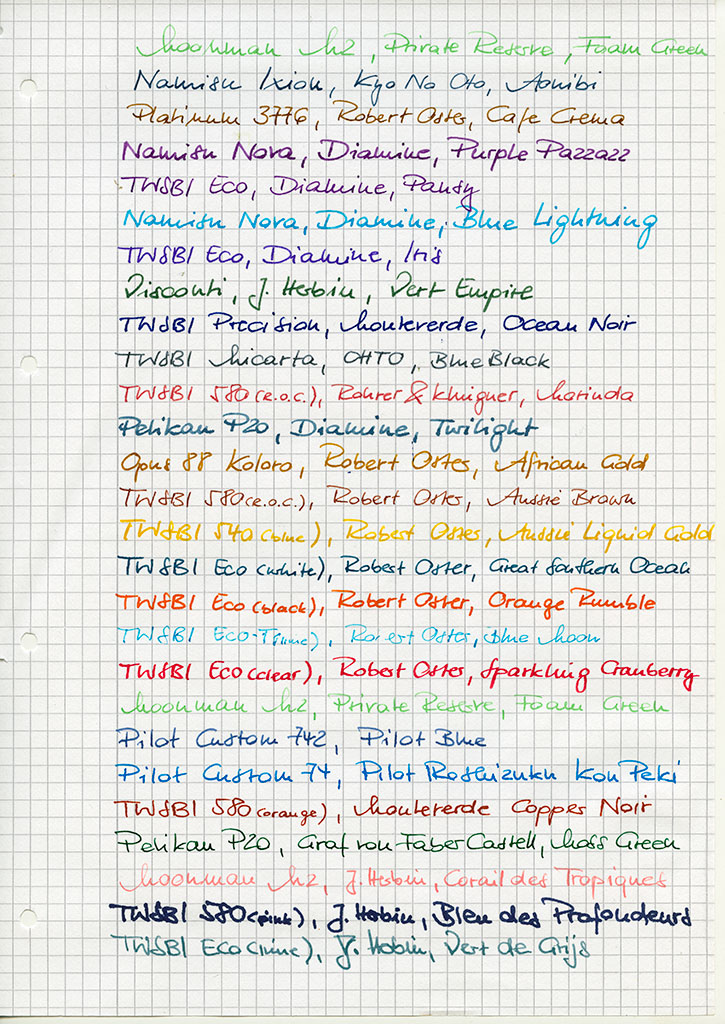 Moonman M2, Private Reserve, Foam Green
Namisu Ixion, Kyo No Oto, Aonibi
Platinum 3776, Robert Oster, Cafe Crema
Namisu Nova, Diamine, Purple Pazzazz
TWSBI Eco, Diamine, Pansy
Namisu Nova, Diamine, Blue Lightning
TWSBI Eco, Diamine, Iris
Visconti, J. Herbin, Vert Empire
TWSBI Precision, Monteverde, Ocean Noir
TWSBI Micarta, OHTO, BlueBlack
TWSBI 580 (R.o.C.), Rohrer & Klingner, Marinda
Pelikan P20, Diamine, Twilight
Opus 88 Koloro, Robert Oster, African Gold
TWSBI 580 (R.o.C.), Robert Oster, Aussie Brown
TWSBI 540 (blue), Robert Oster, Aussie Liquid Gold
TWSBI Eco (white), Robert Oster, Great Southern Ocean
TWSBI Eco (black), Robert Oster, Orange Rumble
TWSBI Eco-T (lime), Robert Oster, Blue Moon
TWSBI Eco (clear), Robert Oster, Sparkling Cranberry
Moonman M2, Private Reserve, Foam Green
Pilot Custom 742, Pilot Blue
Pilot Custom 74, Pilot Iroshizuku Kon Peki
TWSBI 580 (orange), Monteverde Copper Noir
Pelikan P20, Graf von FaberCastell, Moss Green
Moonman M2, J. Herbin, Corail des Tropiques
TWSBI 580 (pink), J. Herbin, Bleu des Profondeurs
TWSBI Eco (lime), J. Hebin, Vert de Grijs